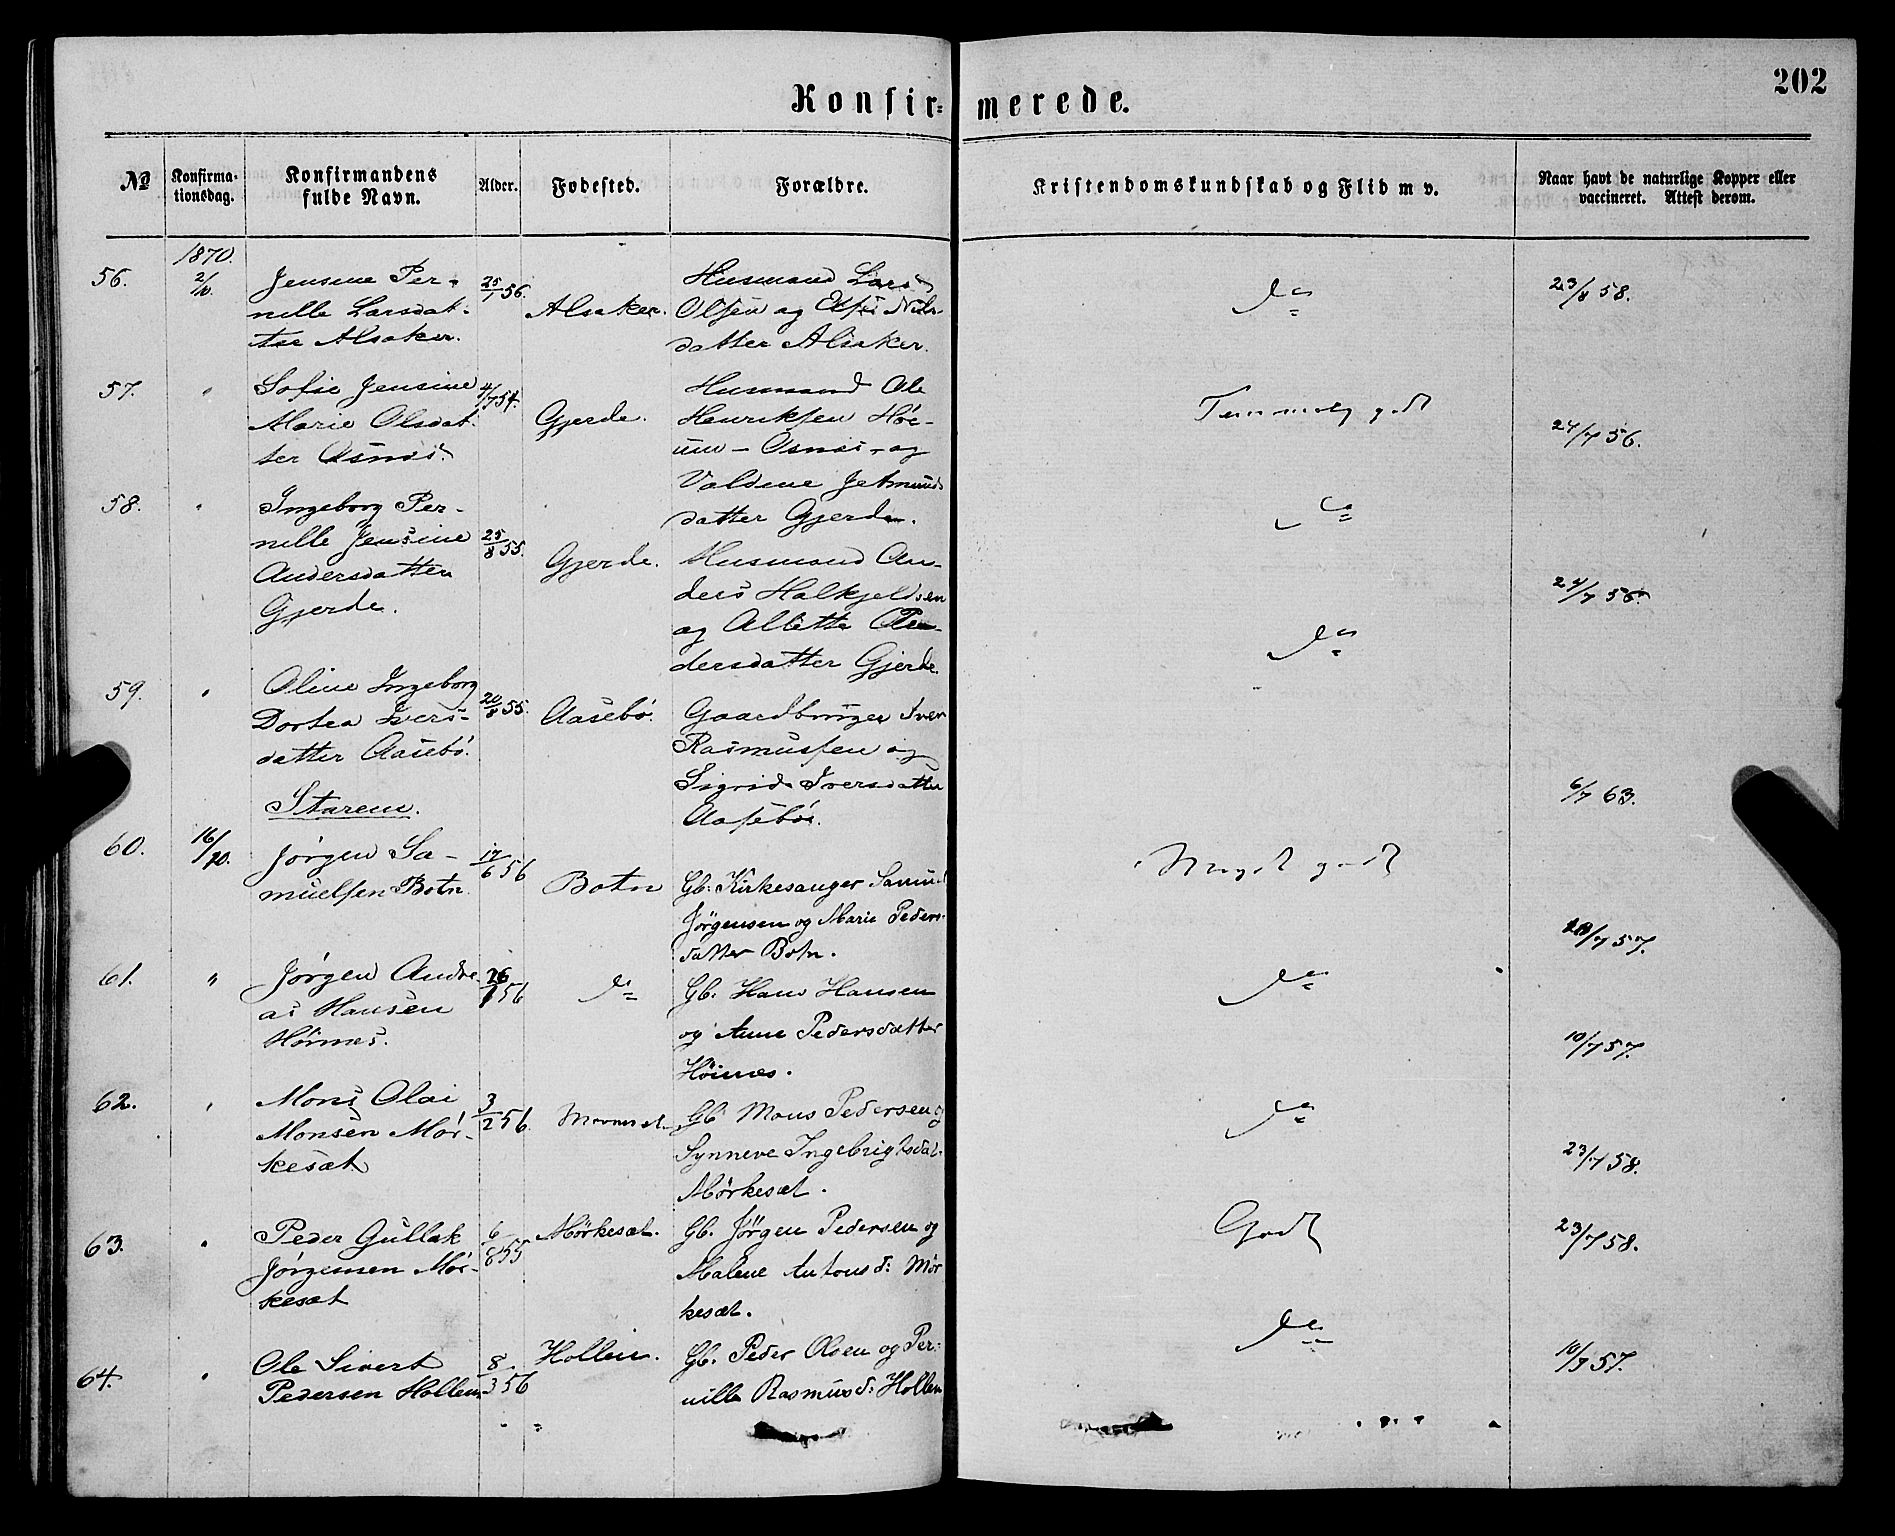 202
Konfir= merede.
No
Konfirma-
tionsdag.
Konfirmandens
fulde Navn.
Alder.
Fodested.
Forældre.
Kristendomskundskab og Flid m v.
Naar havt de naturlige Kopper eller
vaccineret. Attest derom.
1870.
56.
2/10.
Jensine Per-
nille Larsdat-
ter Alsaker.
25/1 56.
Alsaker.
Husmand Lars
Olsen og
datter Alsaker.
Do
23/8 58.
57.
"
Sofie Jensine
Marie Olsdat-
ter Osnes.
4/7 54.
Gjerde.
Husmand Ole
Henriksen
Osnes - og
datter Gjerde.
Temmelig godt
24/7 56.
58.
"
Ingeborg Per-
nille Jensine
Andersdatter
Gjerde.
25/8 55.
Gjerde.
Husmand An-
ders Halkjeldsen
og Allette An-
dersdatter Gjerde.
Do
24/7 56.
59.
"
Oline Ingeborg
Dortea Ivers-
datter Aasebö.
20/8 55.
Aasebö.
Gaardbruger Iver
Rasmussen og
Sigrid Iversdatter
Aasebö.
Do
6/7 63.
Starem.
60.
16/10.
Jörgen Sa-
muelsen Botn.
17/6 56
Botn
Gb: Kirkesanger Samuel
Jörgensen og Marie Peders-
datter Botn.
Meget godt
10/7 57.
61.
"
Jörgen Andre-
as Hansen
Höines.
56
Do
Gb: Hans Hansen
og Anne Pedersdatter
Höines.
Do
10/7 57.
62.
"
Mons Olai
Monsen Mör-
kesæt
3/2 56.
Gb Mons Pedersen og
Synneve Ingebrigtsdat.
Mörkesæt.
Do
23/7 58.
63.
"
Peder Gullak
Jörgensen Mör-
kesæt
6/8 55
Mörkesæt.
Gb. Jörgen Pedersen og
Malene Antons d: Mör
kesæt.
Godt
23/7 58.
64.
"
Ole Sivert
Pedersen Hollen
8/3 56
Hollen.
Gb. Peder Olsen og Per-
nille Rasmus d: Hollen
Do
10/7 57.